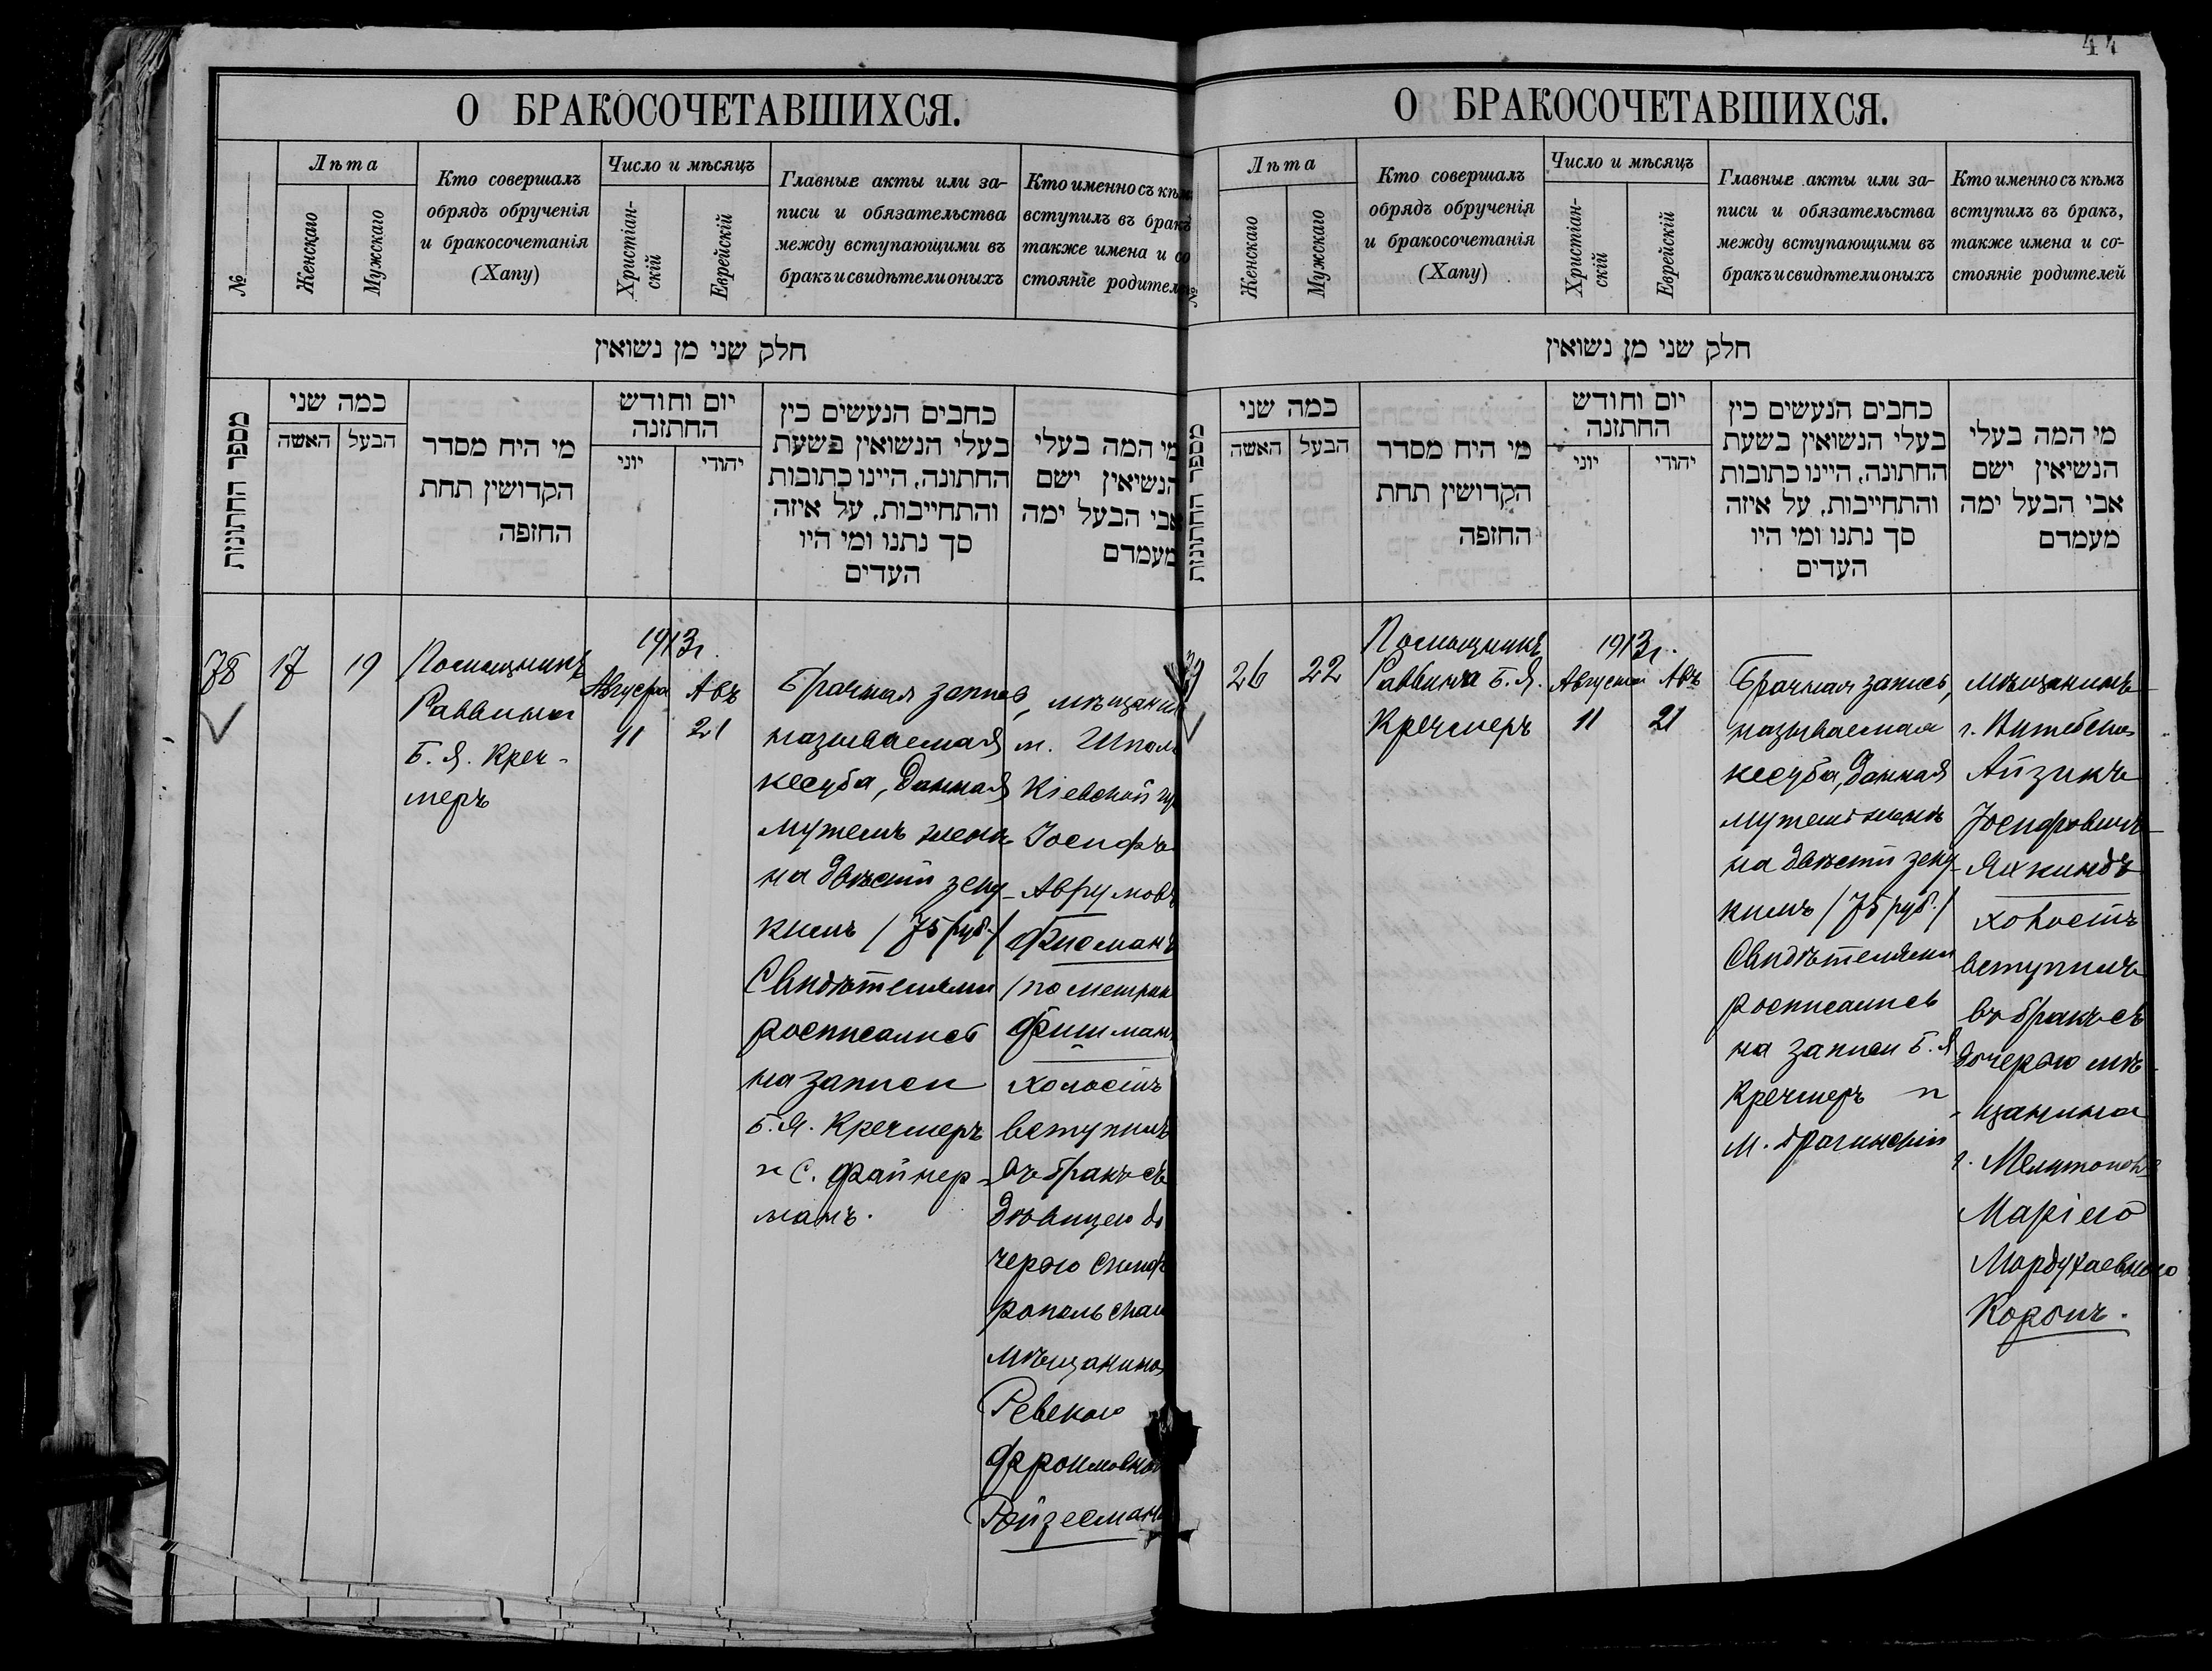 44
О БРАКОСОЧЕТАВШИХСЯ.
№
Лѣта
Женскаго
Мужскаго
Кто совершалъ
обрядъ обрученія
и бракосочетанія
(Хапу)
Число и мѣсяцъ
Христіан-
скій
Еврейскій
Главные акты или за-
писи и обязательства
между вступающими въ
бракъ и свидѣтели оныхъ
Кто именно съ кѣмъ
вступилъ въ бракъ
также имена и со
стояніе родителе
חלק שני מן נשואין
מספר החתונות
כמה שני
האשה
הבעל
מי היח מסדר
הקדושין תחת
החזפה
יום וחודש
החתזנה
יוני
יהודי
כחבים הנעשים כין
בעלי הנשואין פשעת
החתונה, היינו כתובות
והתחייבות, על איזה
סך נתנו ומי היו
העדים
מי המה בעלי
הנשיאין ישם
אבי הבעל ימה
מעמדם
78
17
19
Помощникъ
Раввина
Б. Я. Креч-
меръ
1913г.
Августа Авъ
11 21
Брачная запись,
называемая
кесуба, данная
мужемъ женѣ
на двѣсти зеку
кимъ /75 руб./
Свидѣтелями
росписались
на записи
Б. Я. Кречмеръ
и С. Файнер-
манъ.
мѣщанин
м. Шпол
Кіевской гу
Іосифъ
Аврумов
Фисманъ
/по метрик
Фишман
холостъ
вступилъ
въ бракъ съ
дѣвицею до
черью Симфе
ропольскаго
мѣщанина
Ревекою
Фроимовною
Ройзесман
О БРАКОСОЧЕТАВШИХСЯ.
№
Лѣта
Женскаго
Мужскаго
Кто совершалъ
обрядъ обрученія
и бракосочетанія
(Хапу)
Число и мѣсяцъ
Христіан-
скій
Еврейскій
Главные акты или за-
писи и обязательства
между вступающими въ
бракъ и свидѣтели оныхъ
Кто именно съ кѣмъ
вступилъ въ бракъ,
также имена и со-
стояніе родителей
חלק שני מן נשואין
מספר החתונות
כמה שני
האשה
הבעל
מי היח מסדר
הקדושין תחת
החזפה
יום וחודש
החתזנה
יוני
יהודי
כחבים הנעשים כין
בעלי הנשואין בשעת
החתונה, היינו כתובות
והתחייבות, על איזה
סך נתנו ומי היו
העדים
מי המה בעלי
הנשיאין ישם
אבי הבעל ימה
מעמדם
26
22
Помощникъ
Раввина Б. Я.
Кречмеръ
1913г.
Августа Авъ
11 21
Брачная запись,
называемая
кесуба, данная
мужемъ женѣ
на двѣсти зеку
кимъ /75 руб./
Свидѣтелями
росписались
на записи Б. Я
Кречмеръ и
М. Брагинскій
мѣщанинъ
г. Витебска
Айзикъ
Іосифовичъ
Яхкиндъ
холостъ
вступилъ
въ бракъ съ
дочерью мѣ-
щанина
г. Мелитополя
Маріею
Мордухаевною
Коропъ.